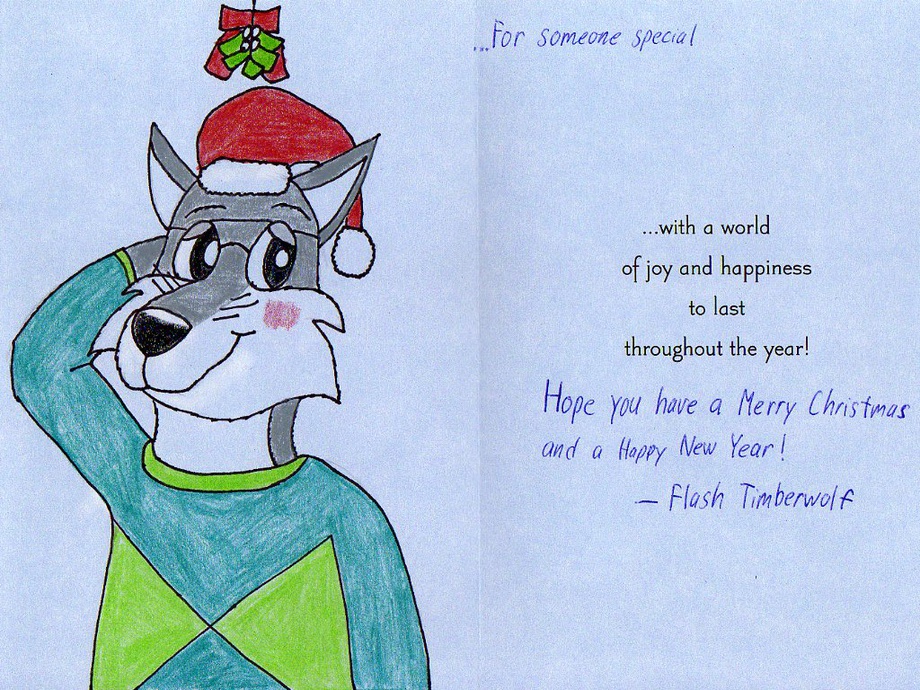 ...For someone special
...with a world
of joy and happiness
to last
throughout the year!
Hope you have a Merry Christmas
and a Happy New Year!
— Flash Timberwolf